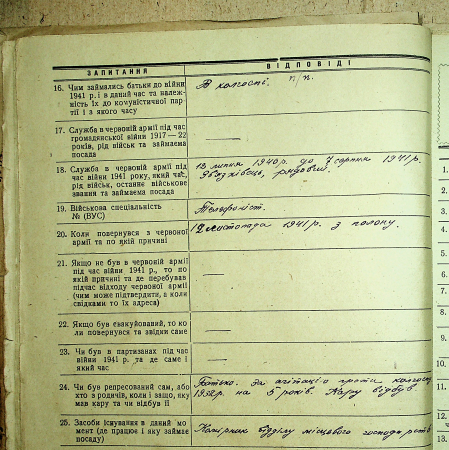 ЗАПИТАННЯ
ВІДПОВІДІ
16. Чим займались батьки до війни
1941 р. і в даний час та належ-
ність їх до комуністичної пар-
тії і з якого часу
В колгоспі. п/п.
17. Служба в червоній армії під час
громадянської війни 1917—22
років, рід військ та займаєма
посада
—
18. Служба в червоній армії під
час війни 1941 року, який час,
рід військ, останнє військове
звання та займаєма посада
13 липня 1940 р. до 7 серпня 1941 р.
рядовий.
19. Військова спеціальність
№ (ВУС)
Телефоніст.
20. Коли повернувся з червоної
армії та по якій причині
12 листопада 1941 р. з полону.
21. Якщо не був в червоній армії
під час війни 1941 р., то по
якій причині та де перебував
підчас відходу червоної армії
(чим може підтвердити, а коли
свідками то їх адреса)
—
22. Якщо був евакуйований, то ко
ли повернувся та звідки саме
—
23. Чи був в партизанах під час
війни 1941 р. та де саме і
який час
—
24. Чи був репресований сам, або
хто з родичів, коли і защо, яку
мав кару та чи відбув її
Батько. за агітацію проти колгосп
1932 р. на 5 років. Кару відбув.
25. Засоби існування в даний мо
мент (де працює і яку займає
посаду)
відділу місцевого
1.
2.
3.
4.
5.
6.
7.
8.
9.
10.
11.
12.
13.